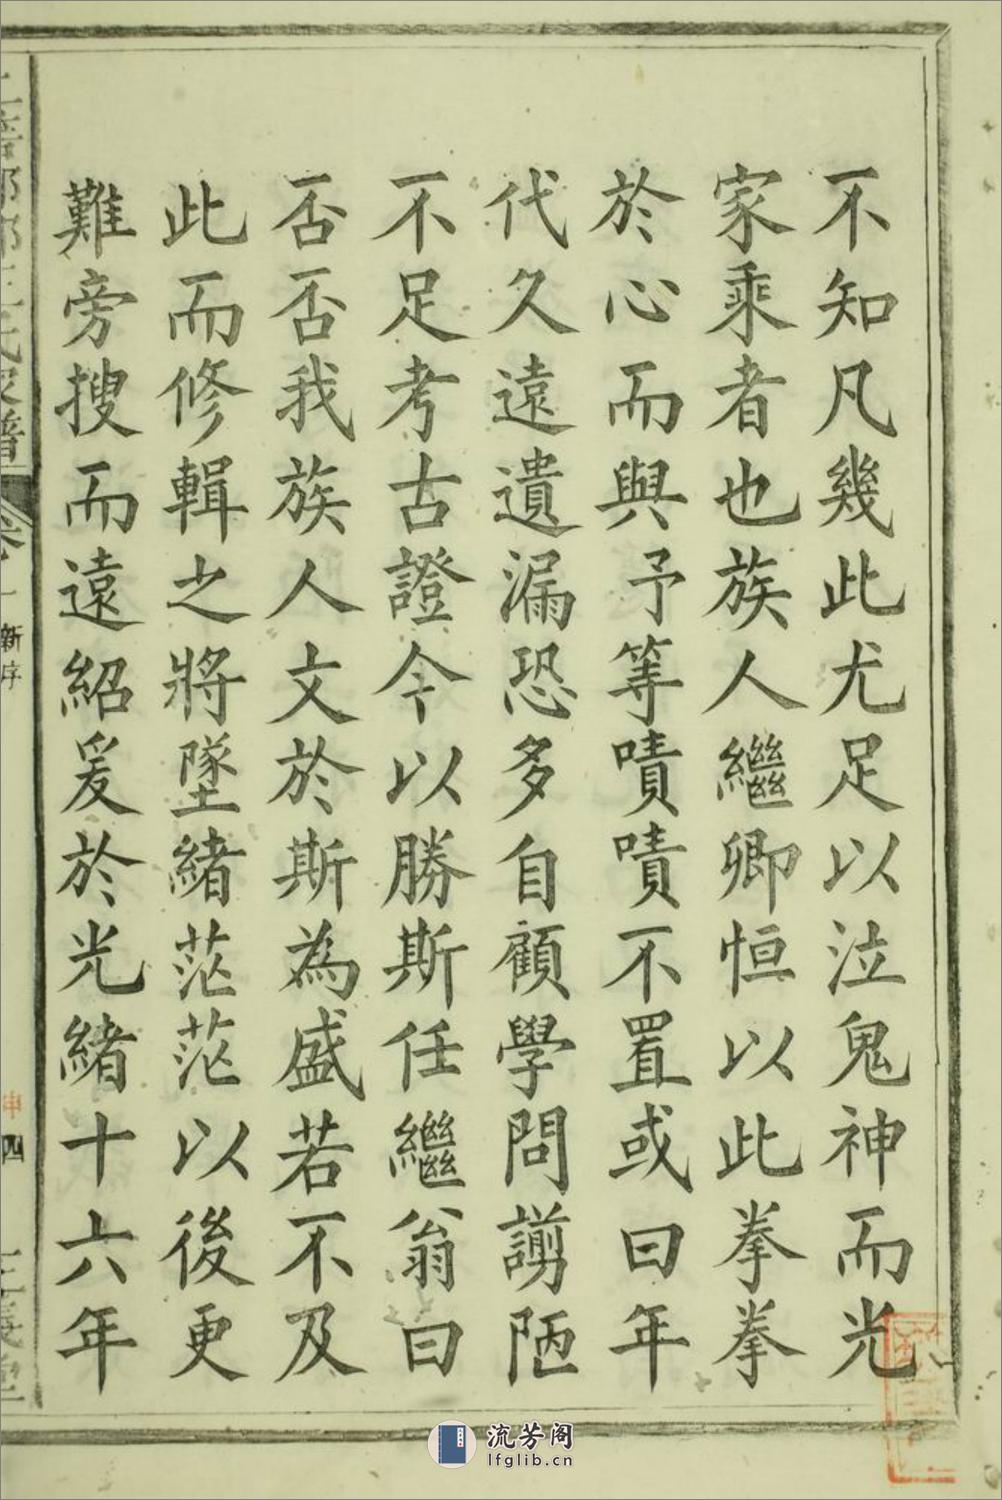 不知凡幾此尤足以泣鬼神而光
家乘者也族人繼卿恒以此拳拳
於心而與予等嘖嘖不置或曰年
代久遠遺漏恐多自顧學問謭陋
不足考古證今以勝斯任繼翁曰
否否我族人文於斯為盛若不及
此而修輯之將墜緒茫茫以後更
難旁搜而遠紹爰於光緒十六年
氏家譜
卷一
新序
四
三義堂
流芳阁
lfglib.cn